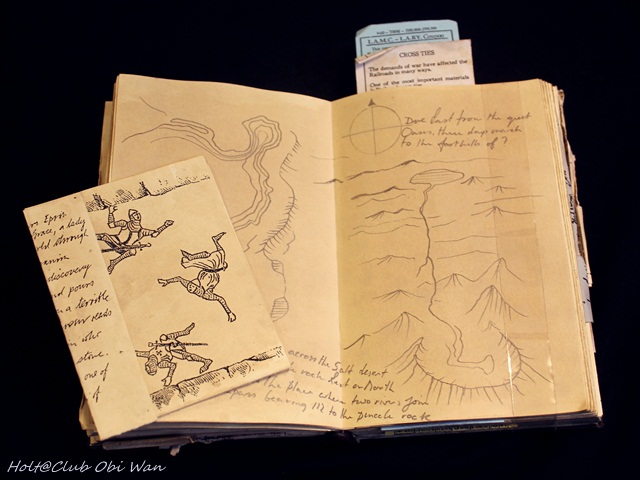 L.A.M.C. - L.A.R.Y. 
CROSS TIES
The demands of war have affected the
Railroads in many ways.
One of the most important materials
Due East from the great
Oasis, three days march
to the foothills of ?
Epris
Grace, a lady
through
discovery
pours
a terrible
reads
who
stone.
one of
of
across the Salt desert
East or North
the place where two rivers join
bearing 112 to the pinnacle rock
Holt@Club Obi Wan